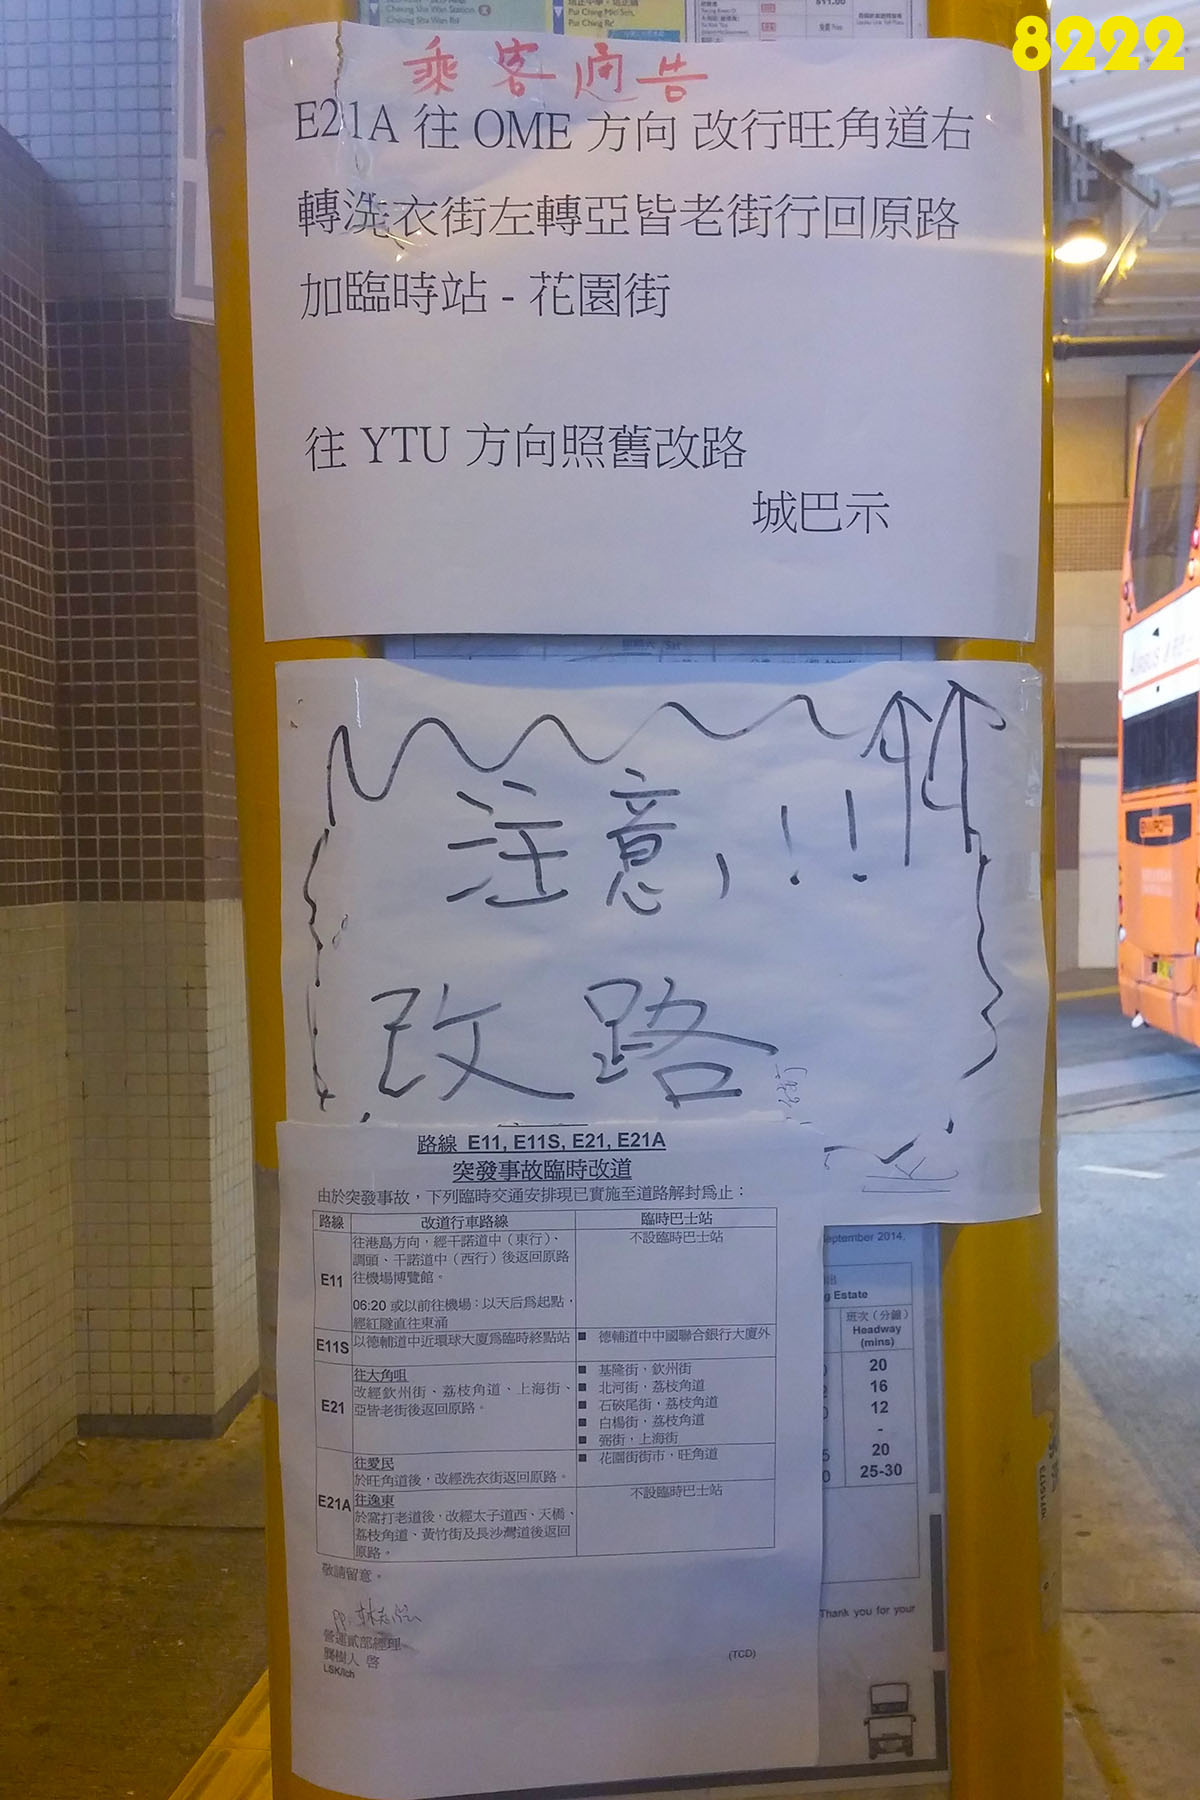 8222
Cheung Sha Wan Station
Cheung Sha Wan Rd
Pui Ching Rd
$11.00
乘客通告
E21A 往 OME 方向 改行旺角道右
轉洗衣街左轉亞皆老街行回原路
加臨時站 - 花園街
往 YTU 方向照舊改路
城巴示
注意, !!
改路
路線 E11, E11S, E21, E21A
突發事故臨時改道
由於突發事故，下列臨時交通安排現已實施至道路解封為止：
路線 改道行車路線 臨時巴士站
E11 往港島方向，經干諾道中（東行）、 不設臨時巴士站
調頭、干諾道中（西行）後返回原路
往機場博覽館。
06:20 或以前往機場：以天后為起點，
經紅隧直往東涌
E11S 以德輔道中近環球大廈為臨時終點站 ■ 德輔道中中國聯合銀行大廈外
E21 往大角咀 ■ 基隆街，欽州街
改經欽州街、荔枝角道、上海街、 ■ 北河街，荔枝角道
亞皆老街後返回原路。 ■ 石硤尾街，荔枝角道
■ 白楊街，荔枝角道
■ 弼街，上海街
E21A 往愛民 ■ 花園街街市，旺角道
於旺角道後，改經洗衣街返回原路。
往逸東 不設臨時巴士站
於窩打老道後，改經太子道西、天橋、
荔枝角道、黃竹街及長沙灣道後返回
原路。
敬請留意。
營運貳部經理
龔樹人 啓
LSK/lch
(TCD)
eptember 2014.
g Estate
班次（分鐘）
Headway
(mins)
20
16
12
-
20
25-30
Thank you for your